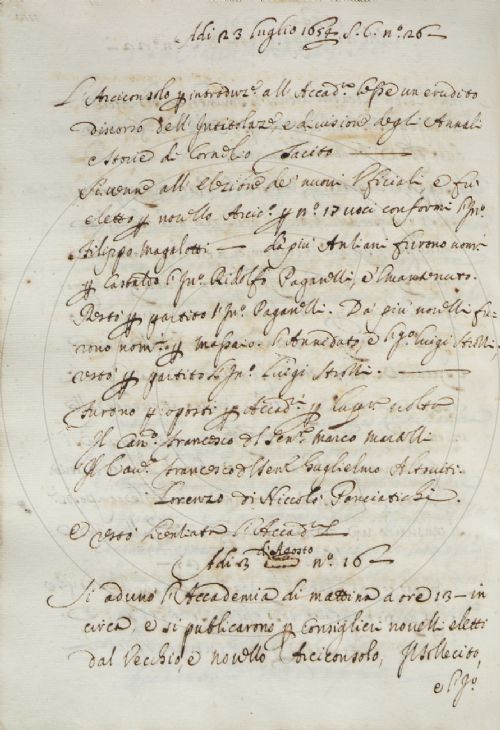 Adi 23 Luglio 1654 S. C. n.º 26
L'Arciconsolo p introduz.e all'Accad.a lesse un erudito
discorso dell'Intitolaz.e, e divisione degli Annali
e Storie di Cornelio Tacito
Si venne all'elezione de' nuovi Ufiziali, e fu
eletto p novello Arcic.o p n.º 17 voci conformi il S.r
Filippo Magalotti — da più Anziani furono nom.
p Castaldo il S.r Ridolfo Paganelli, e
Restò p partito il S.r Paganelli. Da più novelli fu-
rono nom.ti p Massaio l'Annidato, e il S.r Luigi Strozzi
restò p partito il S.r Luigi Strozzi.
Furono proposti p Accad.ci p la p.a volta
Il Cav.r Francesco del Sen.r Marco Martelli
Il Cav.r Francesco del Sen.r Guglielmo Altoviti.
Lorenzo di Niccolò Panciatichi.
E restò licenziata l'Accad.a
Adi 3 d'Agosto n.º 16
Si adunò l'Accademia di mattina a ore 13 in
circa, e si publicarono p Consiglieri novelli eletti
dal Vecchio, e novello Arciconsolo, Il Sollecito,
e il S.r